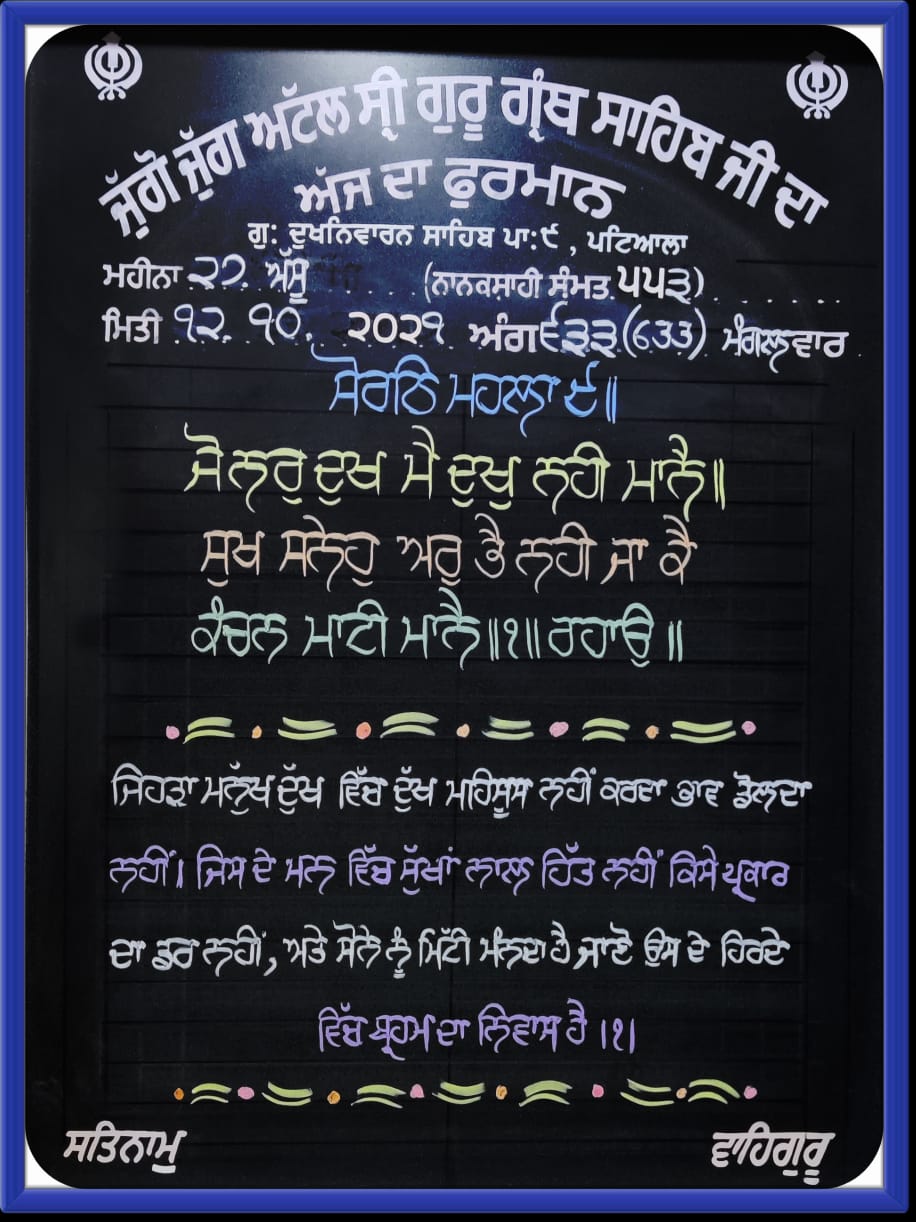 ਜੁੱਗੋ ਜੁੱਗ ਅਟੱਲ ਸ੍ਰੀ ਗੁਰੂ ਗ੍ਰੰਥ ਸਾਹਿਬ ਜੀ ਦਾ
ਅੱਜ ਦਾ ਫੁਰਮਾਨ
ਗੁ: ਦੁਖਨਿਵਾਰਨ ਸਾਹਿਬ ਪਾ:੯ , ਪਟਿਆਲਾ
ਮਹੀਨਾ ੨੭ ਅੱਸੂ (ਨਾਨਕਸ਼ਾਹੀ ਸੰਮਤ ੫੫੩)
ਮਿਤੀ ੧੨. ੧੦. ੨੦੨੧ ਅੰਗ ੬੩੩ (633) ਮੰਗਲਵਾਰ
ਸੋਰਠਿ ਮਹਲਾ ੯॥
ਜੋ ਨਰੁ ਦੁਖ ਮੈ ਦੁਖੁ ਨਹੀ ਮਾਨੈ॥
ਸੁਖ ਸਨੇਹੁ ਅਰੁ ਭੈ ਨਹੀ ਜਾ ਕੈ
ਕੰਚਨ ਮਾਟੀ ਮਾਨੈ॥੧॥ ਰਹਾਉ ॥
ਜਿਹੜਾ ਮਨੁੱਖ ਦੁੱਖ ਵਿੱਚ ਦੁੱਖ ਮਹਿਸੂਸ ਨਹੀਂ ਕਰਦਾ ਭਾਵ ਡੋਲਦਾ
ਨਹੀਂ। ਜਿਸ ਦੇ ਮਨ ਵਿੱਚ ਸੁੱਖਾਂ ਨਾਲ ਹਿੱਤ ਨਹੀਂ ਕਿਸੇ ਪ੍ਰਕਾਰ
ਦਾ ਡਰ ਨਹੀਂ, ਅਤੇ ਸੋਨੇ ਨੂੰ ਮਿੱਟੀ ਮੰਨਦਾ ਹੈ ਜਾਣੋ ਉਸ ਦੇ ਹਿਰਦੇ
ਵਿੱਚ ਬ੍ਰਹਮ ਦਾ ਨਿਵਾਸ ਹੈ ।੧।
ਸਤਿਨਾਮੁ
ਵਾਹਿਗੁਰੂ